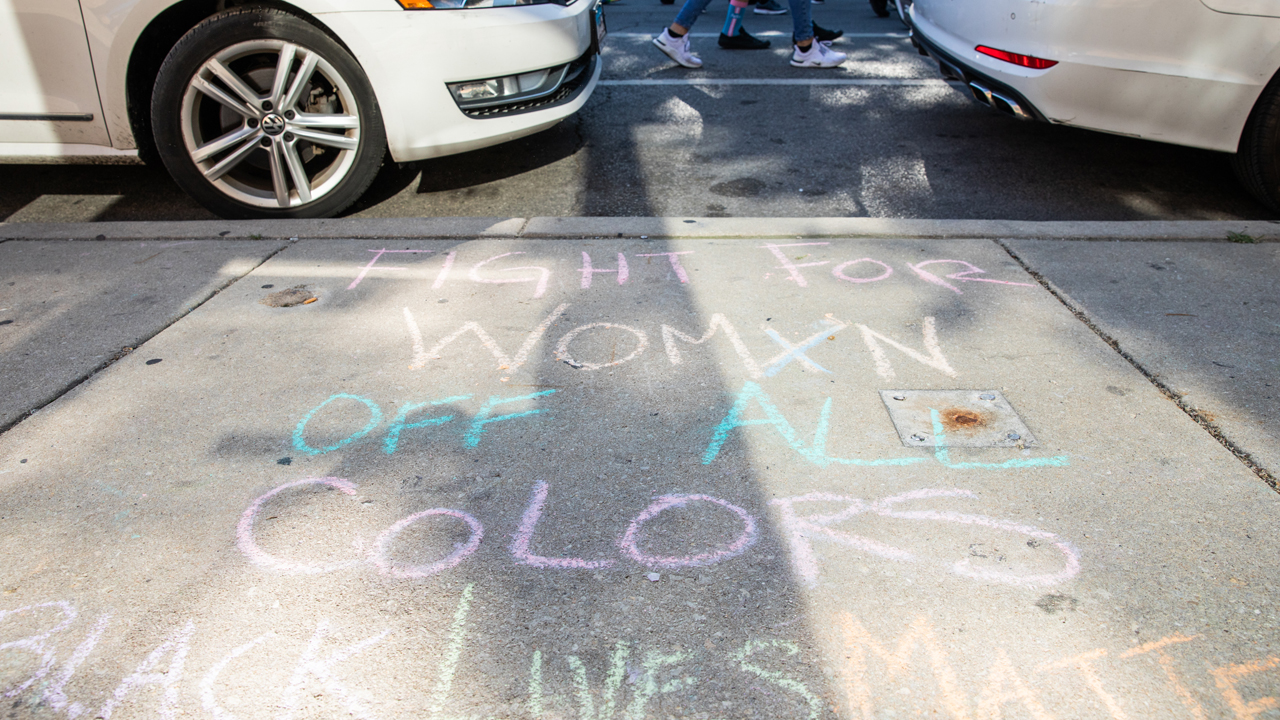 FIGHT FOR
WOMXN
OFF ALL
COLORS
BLACK LIVES MATTE